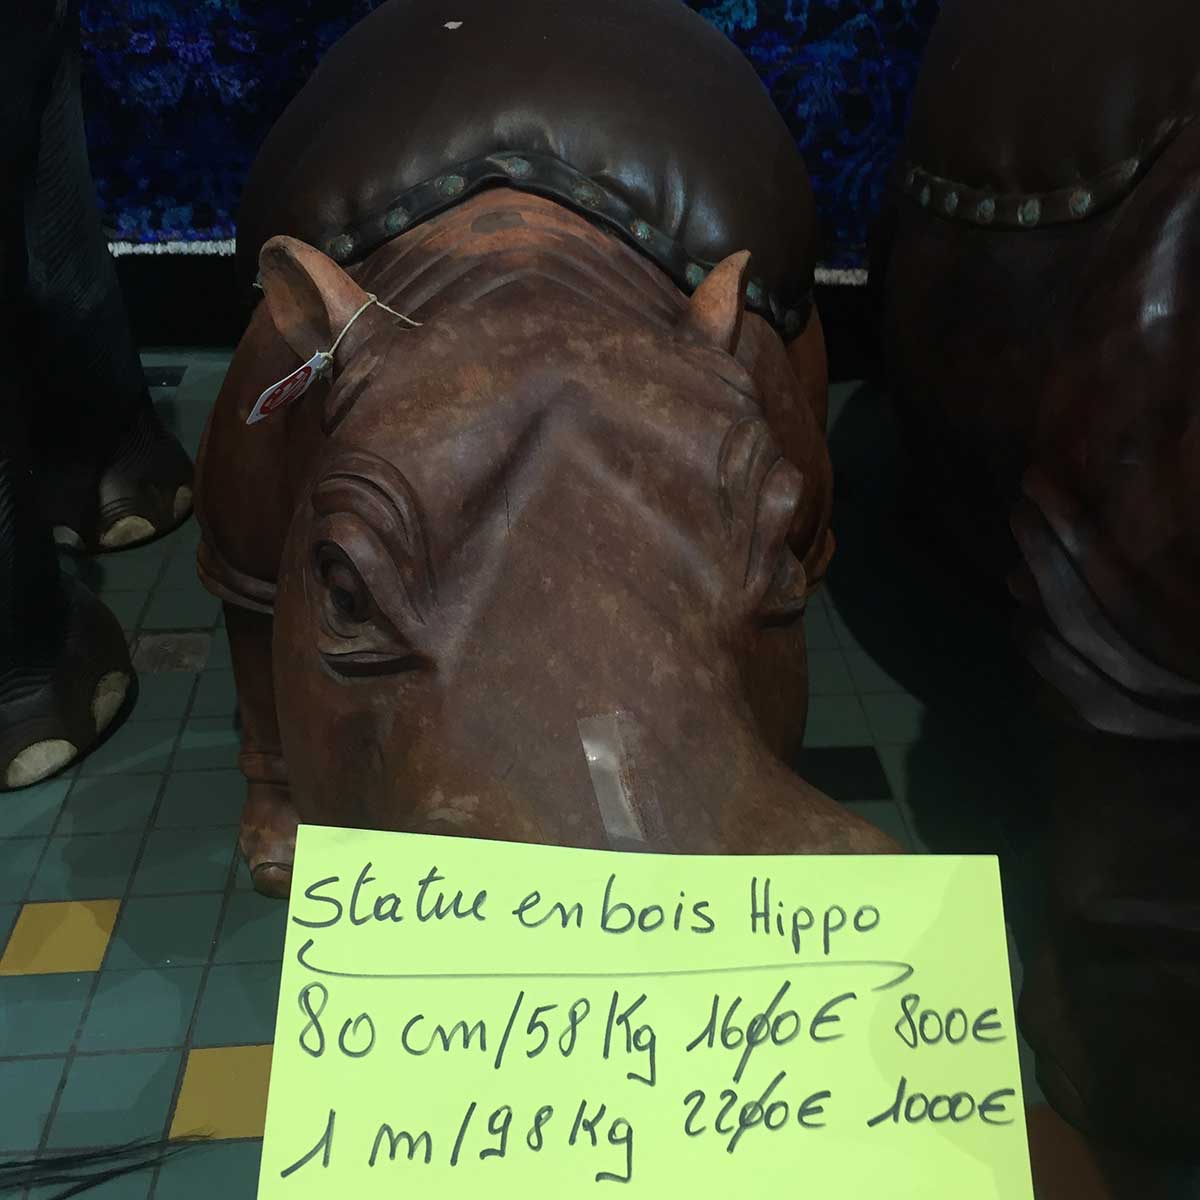 Statue en bois Hippo
80 cm/58 Kg 1600€ 800€
1 m/98 Kg 2200€ 1000€